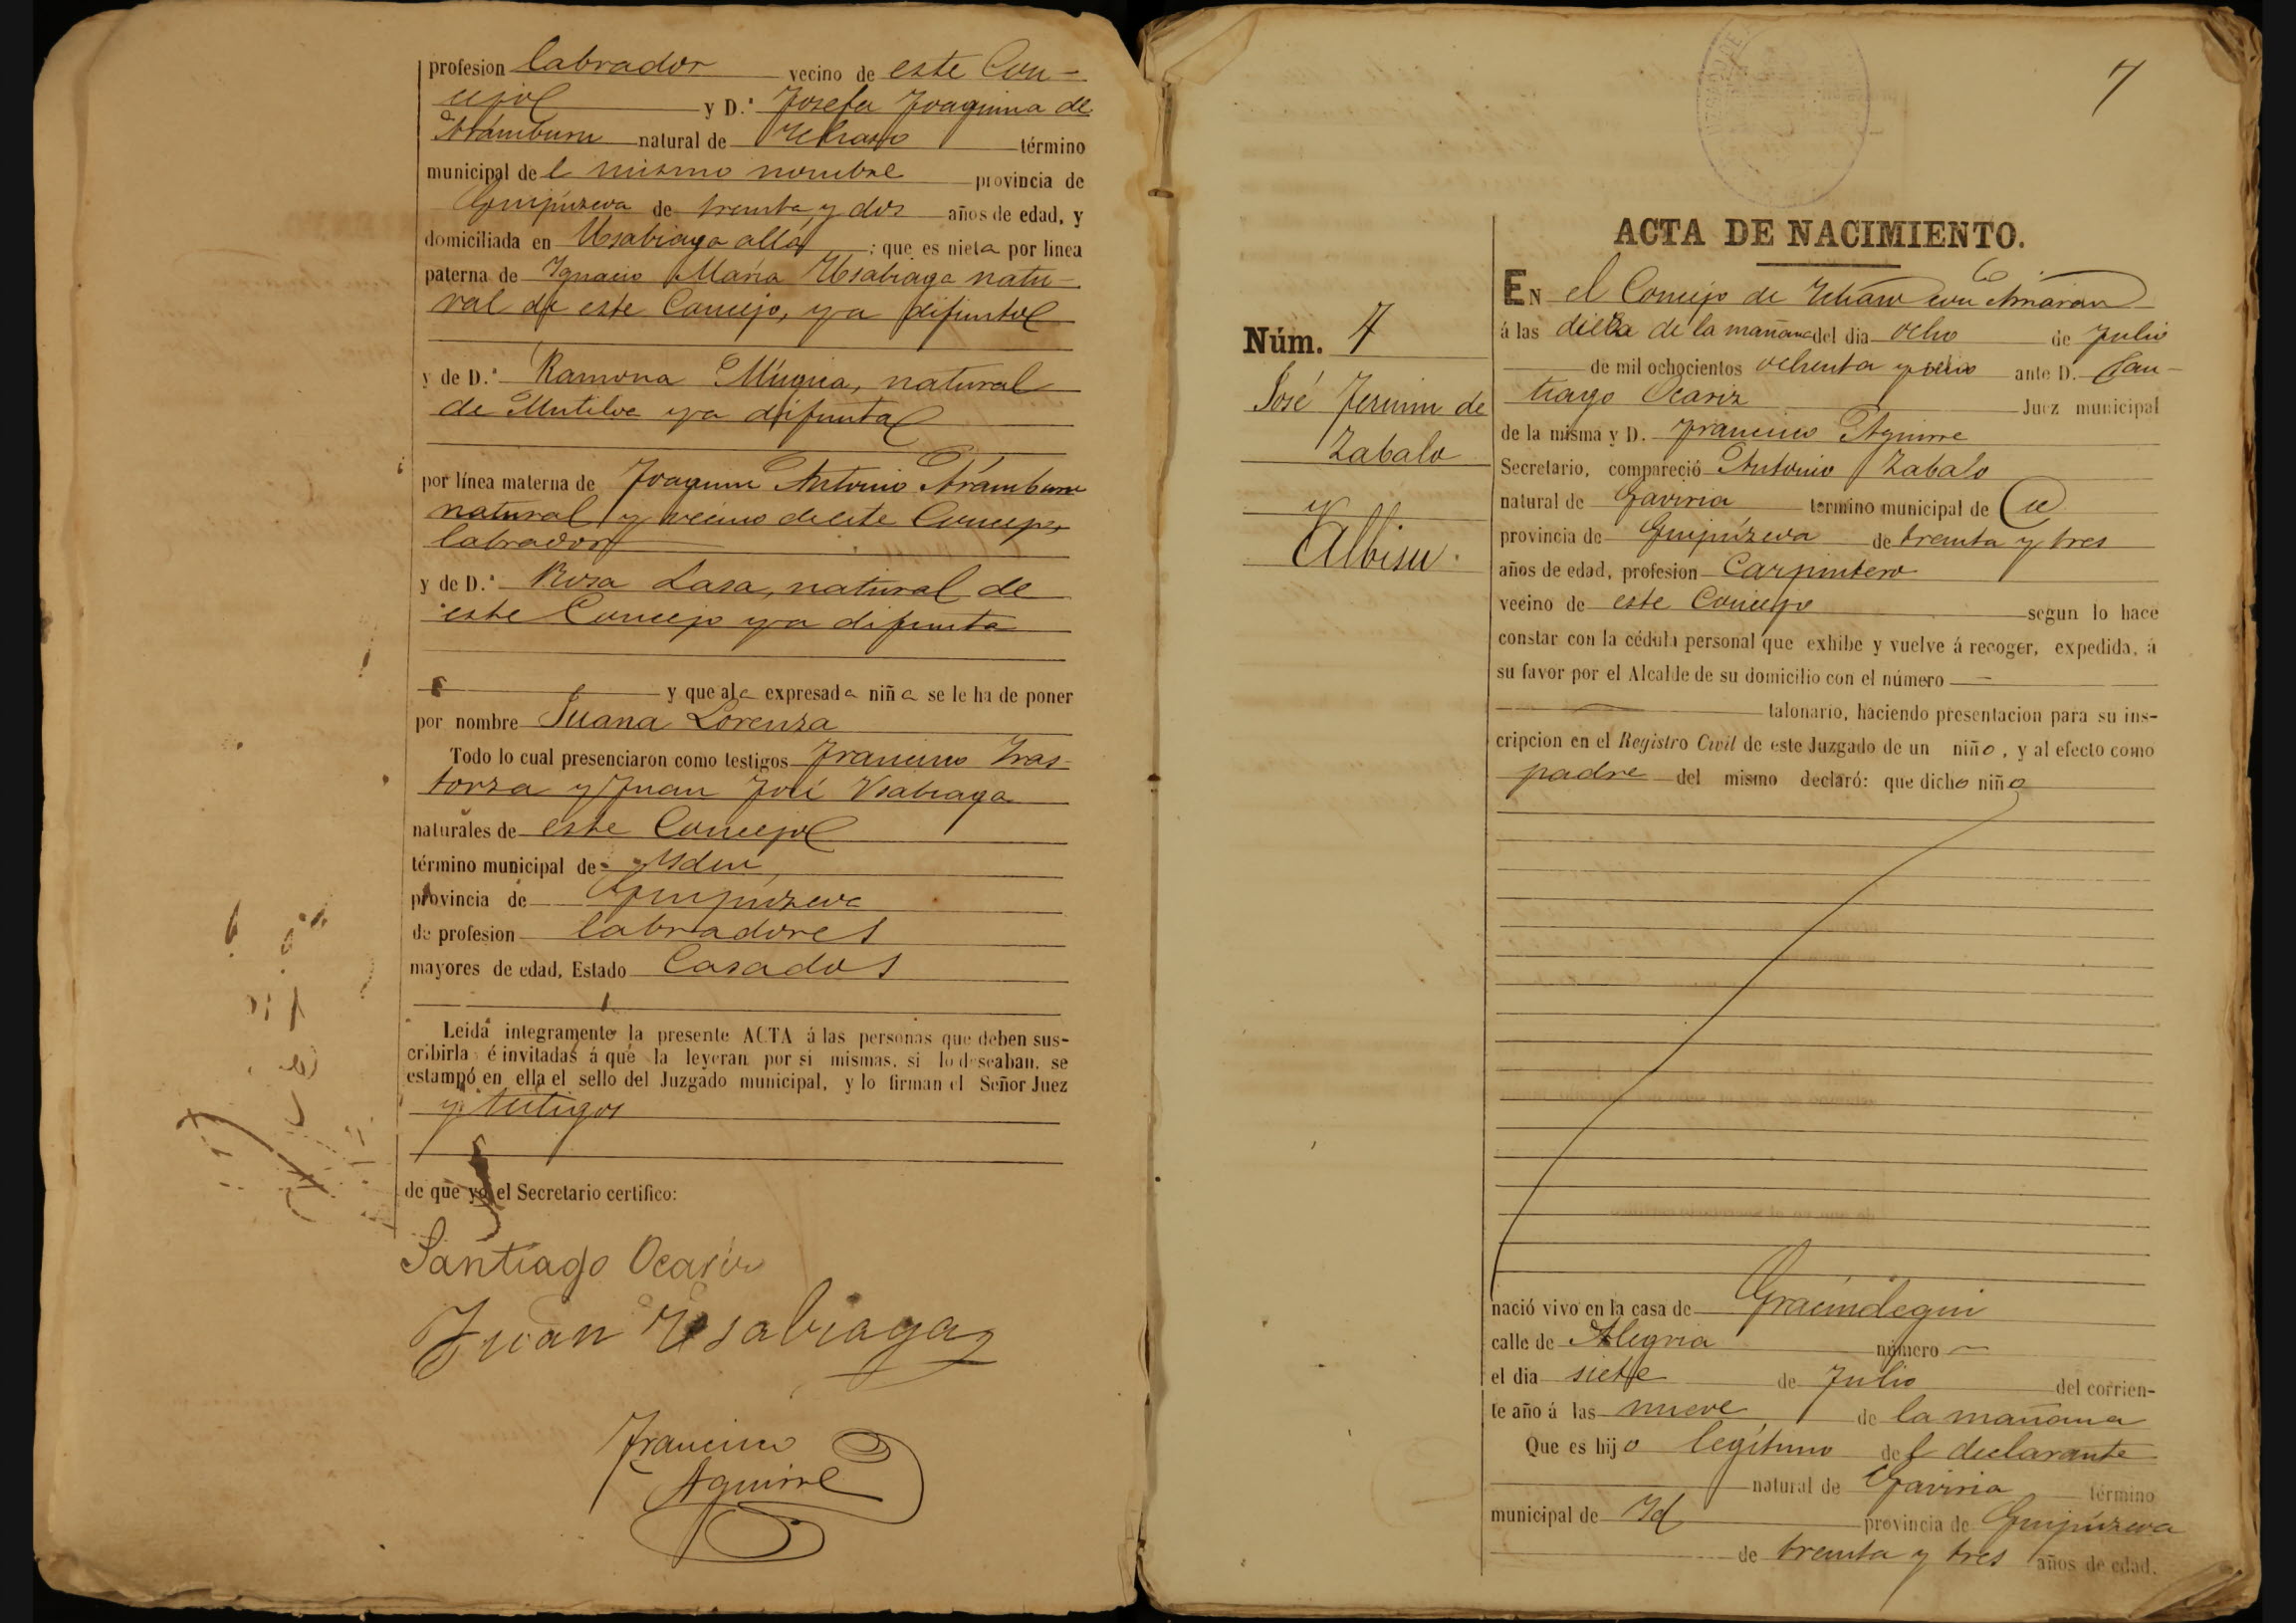 profesion labrador vecino de este Con-
cejo y D.ª Josefa Joaquina de
Arámburu natural de Ichaso término
municipal de l mismo nombre provincia de
Guipúzcoa de treinta y dos años de edad, y
domiciliada en Usabiaga allá ; que es nieta por línea
paterna de Ignacio María Usabiaga natu-
ral de este Concejo, ya difunto
y de D.ª Ramona Múgica, natural
de Mutiloa ya difunta
por línea materna de Joaquin Antonio Arámburu
natural y vecino de este Concejo,
labrador
y de D.ª Rosa Lasa, natural de
este Concejo ya difunta
y que al a expresad a niñ a se le ha de poner
por nombre Juana Lorenza
Todo lo cual presenciaron como testigos Francisco Iras-
torza y Juan José Usabiaga
naturales de este Concejo
término municipal de Idem,
provincia de Guipúzcoa
de profesion labradores
mayores de edad, Estado Casados
Leida integramente la presente ACTA á las personas que deben sus-
cribirla é invitadas á que la leyeran por si mismas, si lo deseaban, se
estampó en ella el sello del Juzgado municipal, y lo firman el Señor Juez
y testigos
de que yo el Secretario certifico:
Santiago Ocariz
Juan Usabiaga
Francisco
Aguirre
7
ACTA DE NACIMIENTO.
Núm. 7
José Fermin de
Zabalo
y
Albisu.
EN el Concejo de Ichaso con Arriaran
á las diez de la mañana del dia ocho de Julio
de mil ochocientos ochenta y ante D. San-
tiago Ocariz Juez municipal
de la misma y D. Francisco Aguirre
Secretario, compareció Antonio Zabalo
natural de Gaviria termino municipal de
provincia de Guipúzcoa de treinta y tres
años de edad, profesion Carpintero
vecino de este Concejo segun lo hace
constar con la cédula personal que exhibe y vuelve á recoger, expedida, á
su favor por el Alcalde de su domicilio con el número
talonario, haciendo presentacion para su ins-
cripcion en el Registro Civil de este Juzgado de un niño, y al efecto como
padre del mismo declaró: que dicho niño
nació vivo en la casa de Gracindegui
calle de Alegria número
el dia siete de Julio del corrien-
te año á las nueve de la mañana
Que es hijo legítimo de l declarante
natural de Gaviria término
municipal de Id provincia de Guipúzcoa
de treinta y tres años de edad.